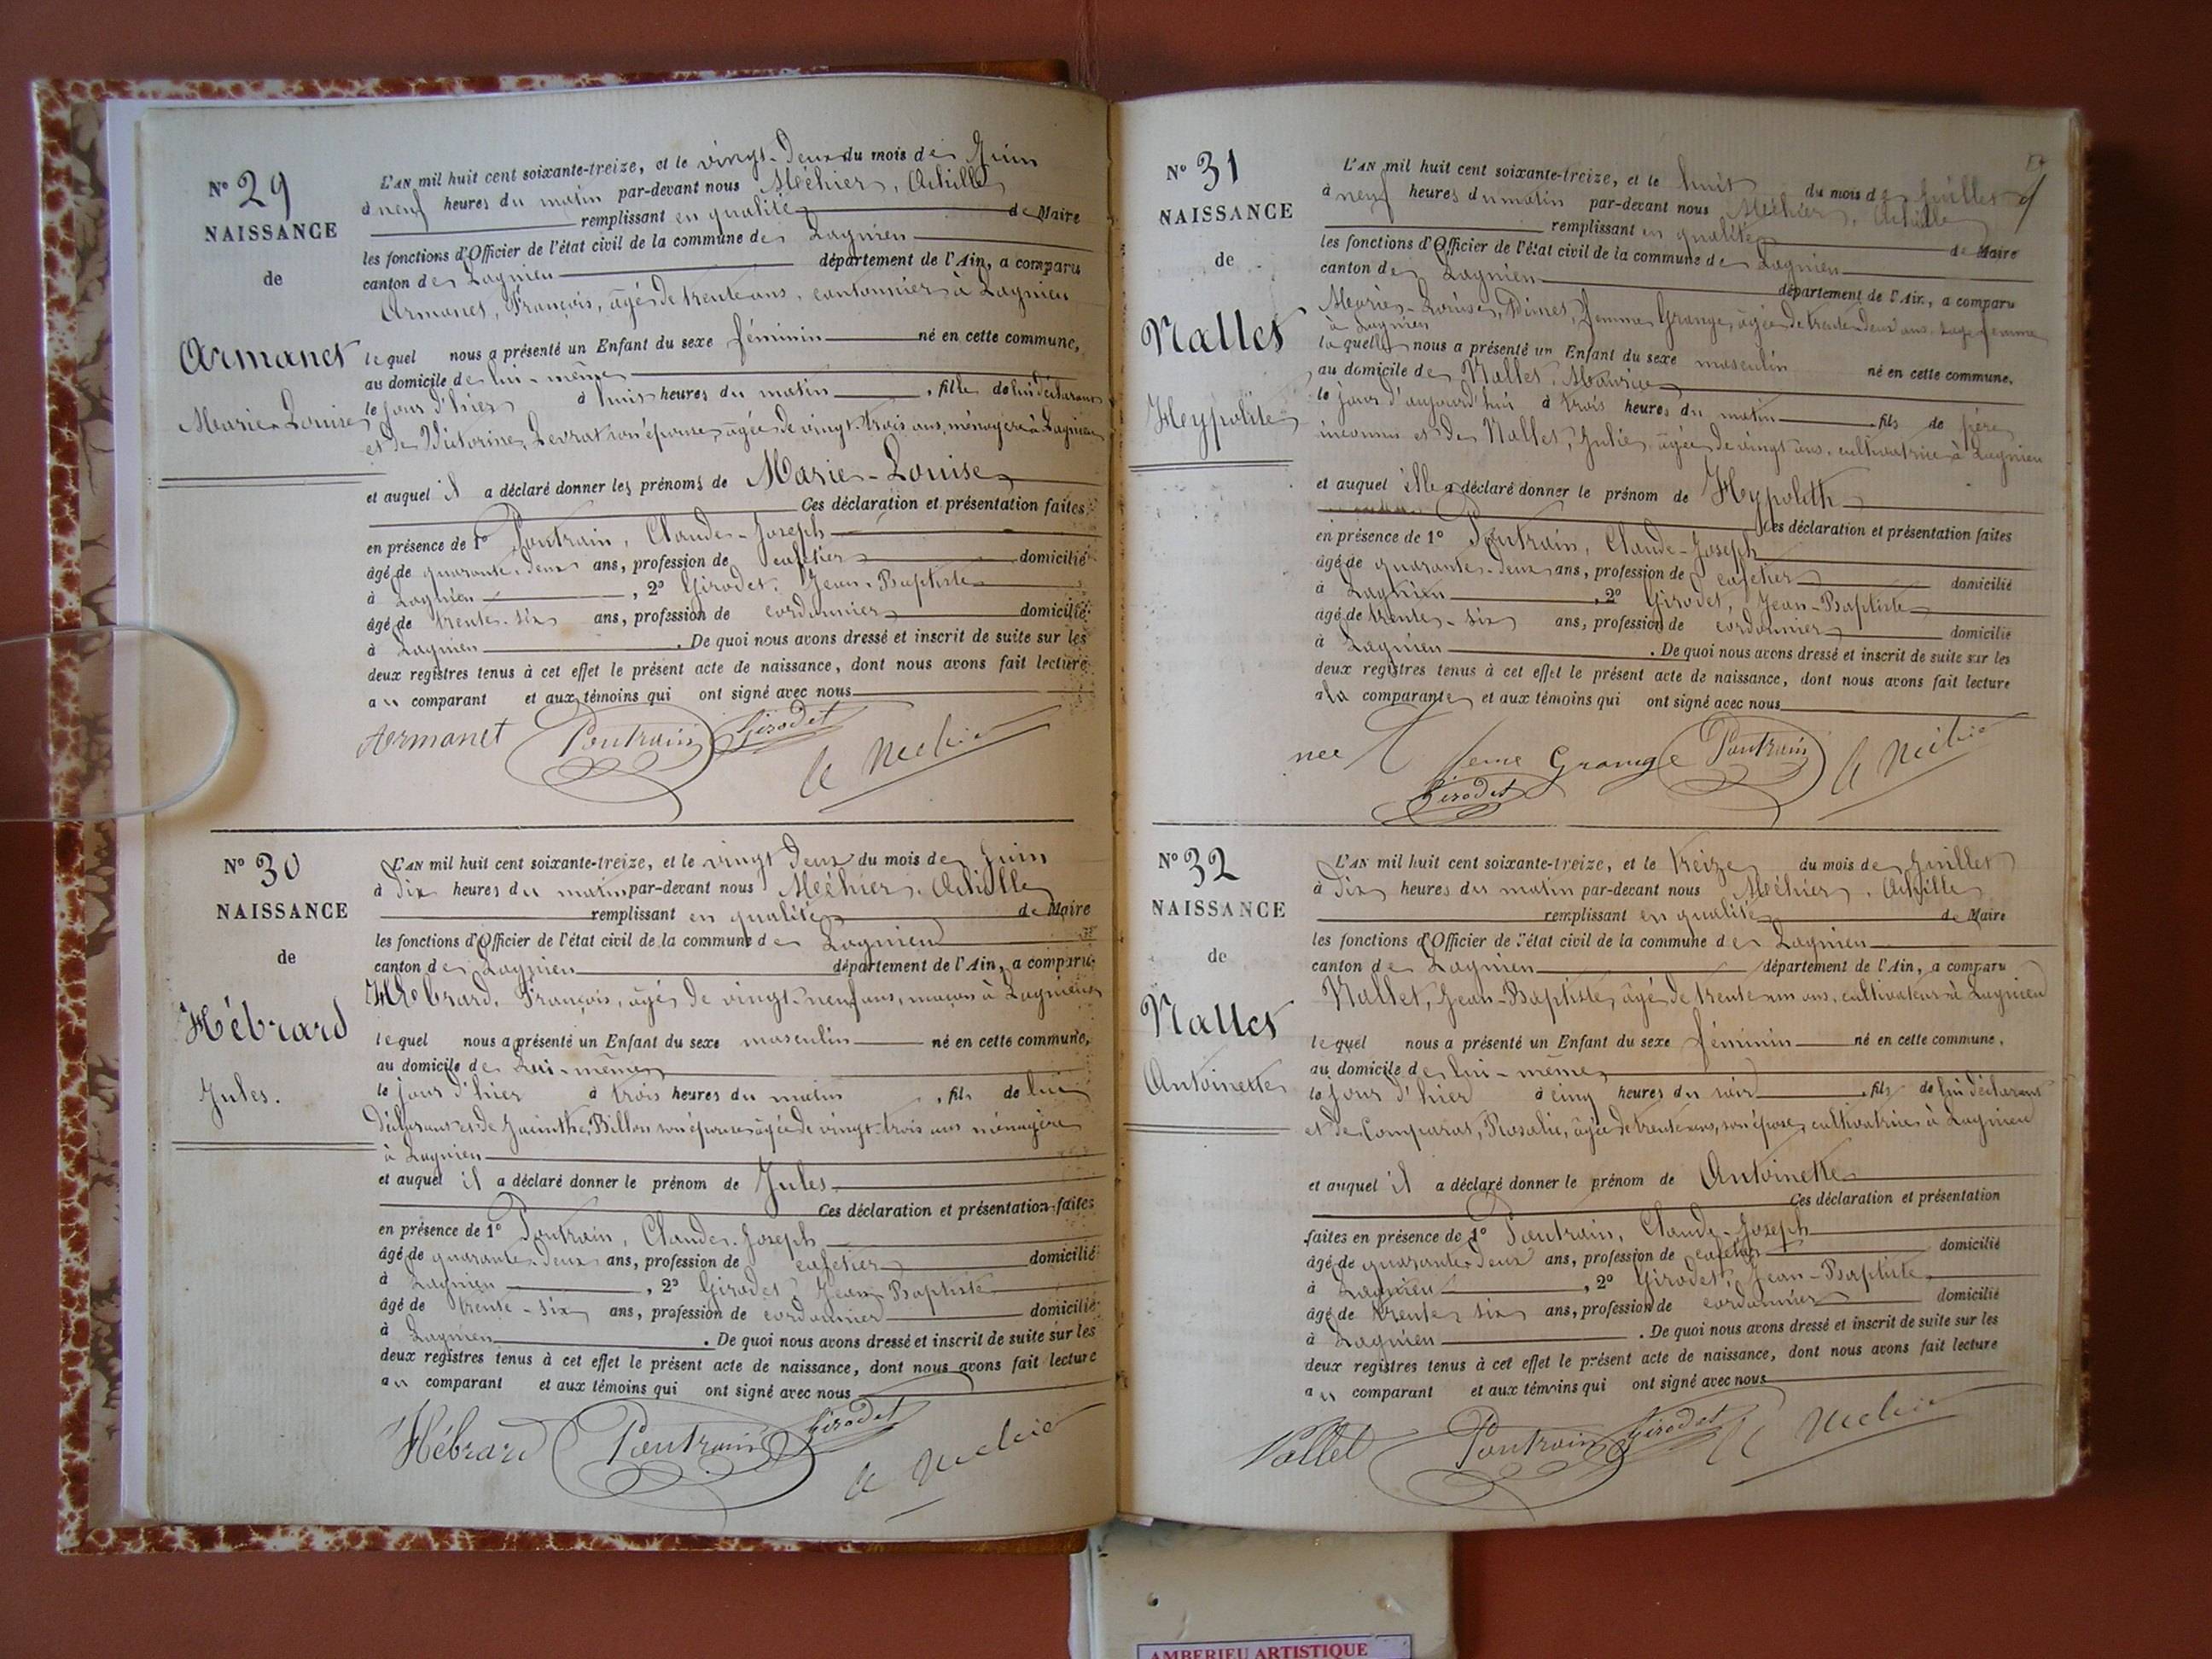 N° 29
NAISSANCE
de
Armanet
Marie-Louise
L'AN mil huit cent soixante-treize, et le vingt-deux du mois de Juin
à neuf heures du matin par-devant nous Méhier, Achille
remplissant en qualité de Maire
les fonctions d'Officier de l'état civil de la commune de Lagnieu
canton de Lagnieu département de l'Ain, a comparu
Armanet, François, âgé de trente ans, cantonnier à Lagnieu
lequel nous a présenté un Enfant du sexe féminin né en cette commune,
au domicile de lui-même
le jour d'hier à huit heures du matin, fille de lui déclarant
et de Victorine Levrat son épouse, âgée de vingt-trois ans, ménagère à Lagnieu
et auquel il a déclaré donner les prénoms de Marie-Louise
Ces déclaration et présentation faites
en présence de 1° Poutrain, Claude-Joseph
âgé de quarante-deux ans, profession de cafetier domicilié
à Lagnieu, 2° Girodet, Jean-Baptiste
âgé de trente-six ans, profession de cordonnier domicilié
à Lagnieu. De quoi nous avons dressé et inscrit de suite sur les
deux registres tenus à cet effet le présent acte de naissance, dont nous avons fait lecture
au comparant et aux témoins qui ont signé avec nous
Armanet Poutrain Girodet
N° 30
NAISSANCE
de
Hébrard
Jules.
L'AN mil huit cent soixante-treize, et le vingt deux du mois de Juin
à dix heures du matin par-devant nous Méhier, Achille
remplissant en qualité de Maire
les fonctions d'Officier de l'état civil de la commune de Lagnieu
canton de Lagnieu département de l'Ain, a comparu
Hébrard, François, âgé de vingt-neuf ans, maçon à Lagnieu
lequel nous a présenté un Enfant du sexe masculin né en cette commune,
au domicile de Lui-même
le jour d'hier à trois heures du matin, fils de lui
déclarant et de Jacinthe Billon son épouse âgée de vingt-trois ans ménagère
à Lagnieu
et auquel il a déclaré donner le prénom de Jules
Ces déclaration et présentation faites
en présence de 1° Poutrain, Claude-Joseph
âgé de quarante-deux ans, profession de cafetier domicilié
à Lagnieu, 2° Girodet, Jean-Baptiste
âgé de trente-six ans, profession de cordonnier domicilié
à Lagnieu. De quoi nous avons dressé et inscrit de suite sur les
deux registres tenus à cet effet le présent acte de naissance, dont nous avons fait lecture
au comparant et aux témoins qui ont signé avec nous
Hébrard Poutrain Girodet
N° 31
NAISSANCE
de
Nallet
Heypolite
L'AN mil huit cent soixante-treize, et le huit du mois de Juillet
à neuf heures du matin par-devant nous Méhier, Achille
remplissant en qualité de Maire
les fonctions d'Officier de l'état civil de la commune de Lagnieu
canton de Lagnieu département de l'Ain, a comparu
Marie-Louise, femme Grange, âgée de trente-deux ans, sage femme
à Lagnieu
laquelle nous a présenté un Enfant du sexe masculin né en cette commune,
au domicile de Nallet, Maurice
le jour d'aujourd'hui à trois heures du matin fils de père
inconnu et de Nallet, Julie, âgée de vingt ans, cultivatrice à Lagnieu
et auquel elle a déclaré donner le prénom de Heypolith
Ces déclaration et présentation faites
en présence de 1° Poutrain, Claude-Joseph
âgé de quarante-deux ans, profession de cafetier domicilié
à Lagnieu, 2° Girodet, Jean-Baptiste
âgé de trente-six ans, profession de cordonnier domicilié
à Lagnieu. De quoi nous avons dressé et inscrit de suite sur les
deux registres tenus à cet effet le présent acte de naissance, dont nous avons fait lecture
à la comparante et aux témoins qui ont signé avec nous
Grange Poutrain
Girodet
N° 32
NAISSANCE
de
Nallet
Antoinette
L'AN mil huit cent soixante-treize, et le treize du mois de Juillet
à dix heures du matin par-devant nous Méhier, Achille
remplissant en qualité de Maire
les fonctions d'Officier de l'état civil de la commune de Lagnieu
canton de Lagnieu département de l'Ain, a comparu
Nallet, Jean-Baptiste, âgé de trente un ans, cultivateur à Lagnieu
lequel nous a présenté un Enfant du sexe féminin né en cette commune,
au domicile de lui-même
le jour d'hier à cinq heures du soir fils de lui déclarant
et de Comparat, Rosalie, âgée de trente ans, son épouse, cultivatrice à Lagnieu
et auquel il a déclaré donner le prénom de Antoinette
Ces déclaration et présentation
faites en présence de 1° Poutrain, Claude-Joseph
âgé de quarante-deux ans, profession de cafetier domicilié
à Lagnieu, 2° Girodet, Jean-Baptiste
âgé de trente six ans, profession de cordonnier domicilié
à Lagnieu. De quoi nous avons dressé et inscrit de suite sur les
deux registres tenus à cet effet le présent acte de naissance, dont nous avons fait lecture
au comparant et aux témoins qui ont signé avec nous
Nallet Poutrain Girodet
AMBERIEU ARTISTIQUE